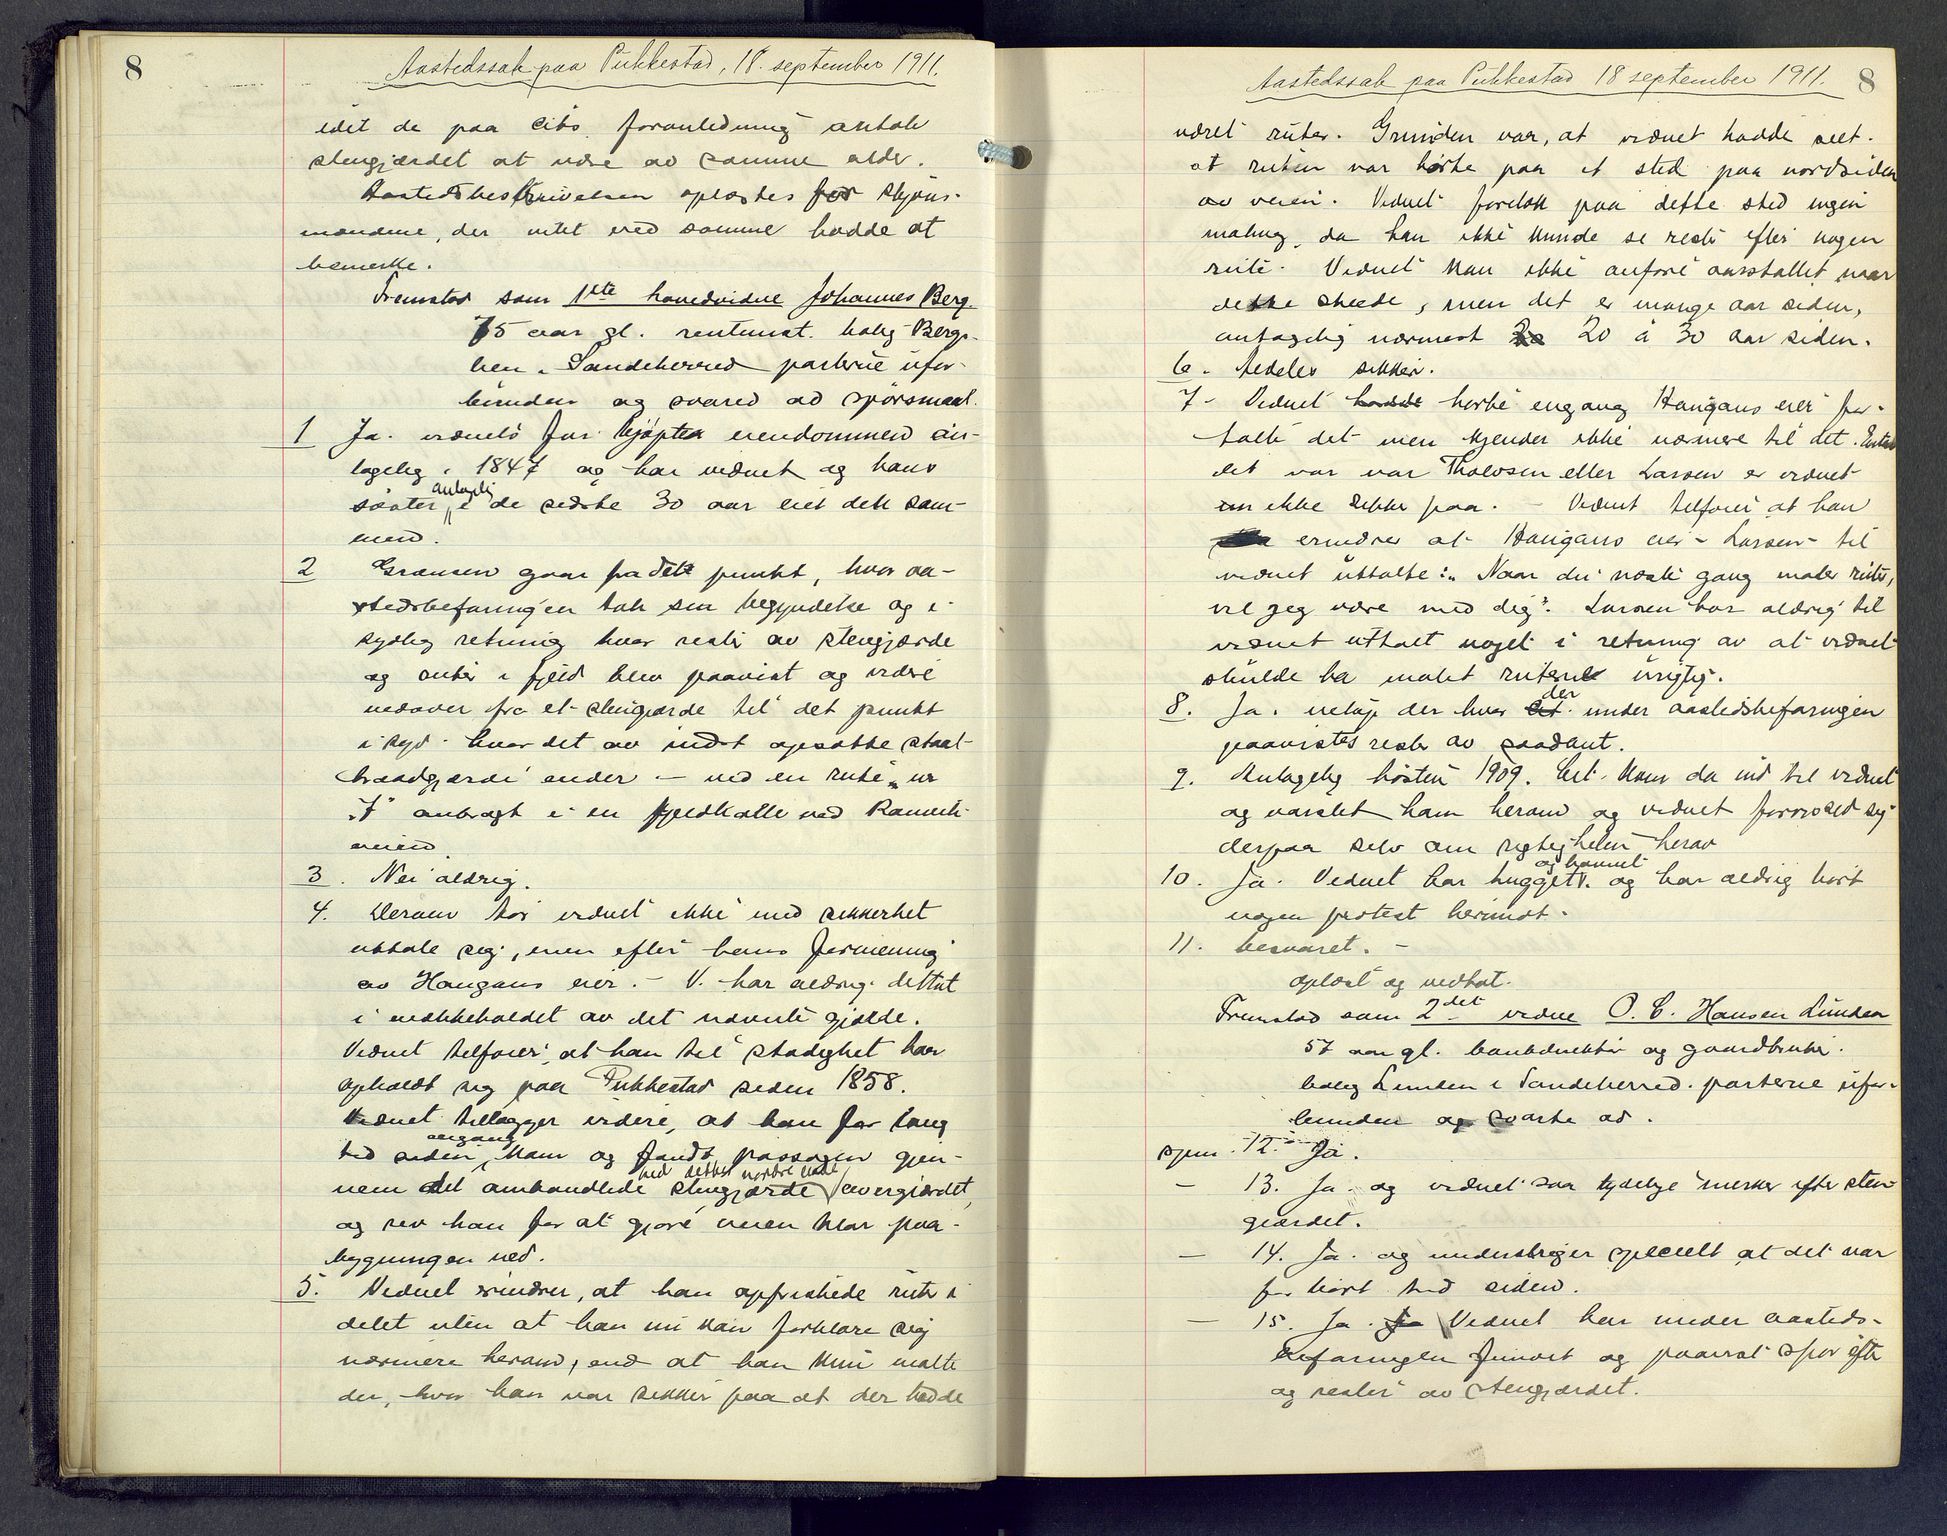 8
Aastedssak paa Pukkestad, 18. september 1911.
idet de paa cits. foranledning antok
stengjærdet at være av samme alder.
Aastedsbeskrivelsen oplæstes for skjøns-
mændene, der intet ved samme hadde at
bemerke.
Fremstod som 1ste hovedvidne Johannes Berg
75 aar gl. rentenist. bolig Bergs-
Sandeherred parterne ufor-
bunden og svared ad spørsmaal.
1 Ja. vidnets far kjøpte eiendommen an-
tagelig i 1847 og har vidnet og hans
søster antagelig i de sidste 30 aar eiet dett sam-
men.
2 Grænsen gaar fra det punkt, hvor aa-
stedsbefaringen tok sin begyndelse og i
sydlig retning hvor rester av stengjærde
og ruter i fjeld blev paavist og videre
nedover fra et stengjærde til det punkt
i syd hvor det av indst. opsatte staal-
traadgjærde ender – ved en rute "nr
7" anbragt i en fjeldkolle ved Ranvik-
veien.
3. Nei aldrig.
4. Derom tør vidnet ikke med sikkerhet
uttale sig, men efter hans formening
av Haugans eier. – V. har aldrig deltat
i vedlikeholdet av det nævnte gjærde.
Vidnet tilføier, at han til stadighet har
opholdt sig paa Pukkestad siden 1858.
Vidnet tillægger videre, at han for lang
tid siden engang kom og fandt passagen gjen-
nem det omhandlede stengjærde ved dettes nordre ende overgjærdet,
og rev han for at gjøre veien klar paa-
bygningen ned.
5. Vidnet erindrer, at han opfriskede ruter i
delet uten at han nu kan forklare sig
nærmere herom, end at han kun malte
der, hvor han var sikker paa at der hadde
Aastedssak paa Pukkestad 18 september 1911. 8
været ruter. Grunden var, at vidnet hadde seet
at ruten var borte paa et sted paa nordsiden
av veien. Vidnet foretok paa dette sted ingen
maling, da han ikke kunde se rester efter nogen
rute. Vidnet kan ikke anføre aarstallet naar
dette skeede, men det er mange aar siden,
antagelig nærmest 20 à 30 aar siden.
6. Aldeles sikker.
7. Vidnet hørte engang Haugans eier for-
talte det men kjender ikke nærmere til det. Enten
det var Tholvsen eller Larsen er vidnet
ikke sikker paa. – Vidnet tilføier at han
erindrer at Haugans eier – Larsen – til
vidnet uttalte: "Naar du næste gang maler ruter,
vil jeg være med dig". Larsen har aldrig til
vidnet uttalt noget i retning av at vidnet
skulde ha malet ruterne urigtig.
8. Ja. netop der hvor der under aastedsbefaringen
paavistes rester av saadant.
9. Antagelig høsten 1909. Cit. kom da ind til vidnet
og varslet ham herom og vidnet forvisset sig
derpaa selv om rigtigheten herav
10. Ja. Vidnet har hugget og havnet. og har aldrig hørt
nogen protest herimot.
11. besvaret. –
oplæst og vedtat.
Fremstod som 2det vidne O. C. Hansen Lunden
57 aar gl. bankdirektør og gaardbruker.
bolig Lunden i Sandeherred. parterne ufor-
bunden og svarte ad.
spm. 12. Ja.
– 13. Ja. og vidnet saa tydelige merker efter sten-
gjærdet.
– 14. Ja. og understreger specielt at det var
for kort tid siden.
– 15. Ja. Vidnet har under aasteds-
befaringen fundet og paavist spor efter
og rester av stengjærdet.